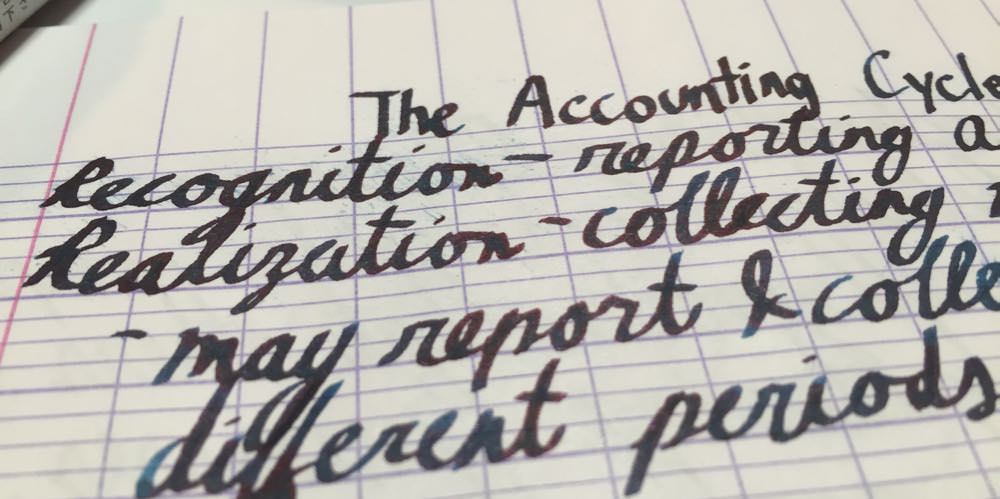 The Accounting Cycle
Recognition - reporting a
Realization - collecting
- may report & colle
different periods